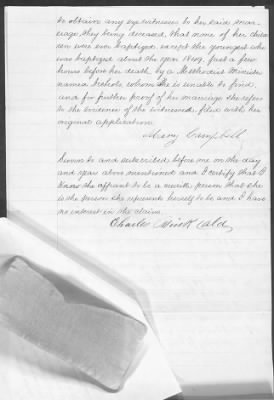 to obtain any eye witnesses to her said mar-
riage they being deceased, that none of her child
ren were ever baptized except the youngest who
was baptized about the year 1849, just a few
hours before her death by a Methodist Minister
named Nichols, whom she is unable to find,
and for further proof of her marriage she refers
to the evidence of the witnesses filed with her
original application.
Mary Campbell
Sworn to and subscribed before me on the day
and year above mentioned and I certify that I
know the affiant to be a person that she
is the person she represents herself to be and I have
no interest in the claim.
Charles